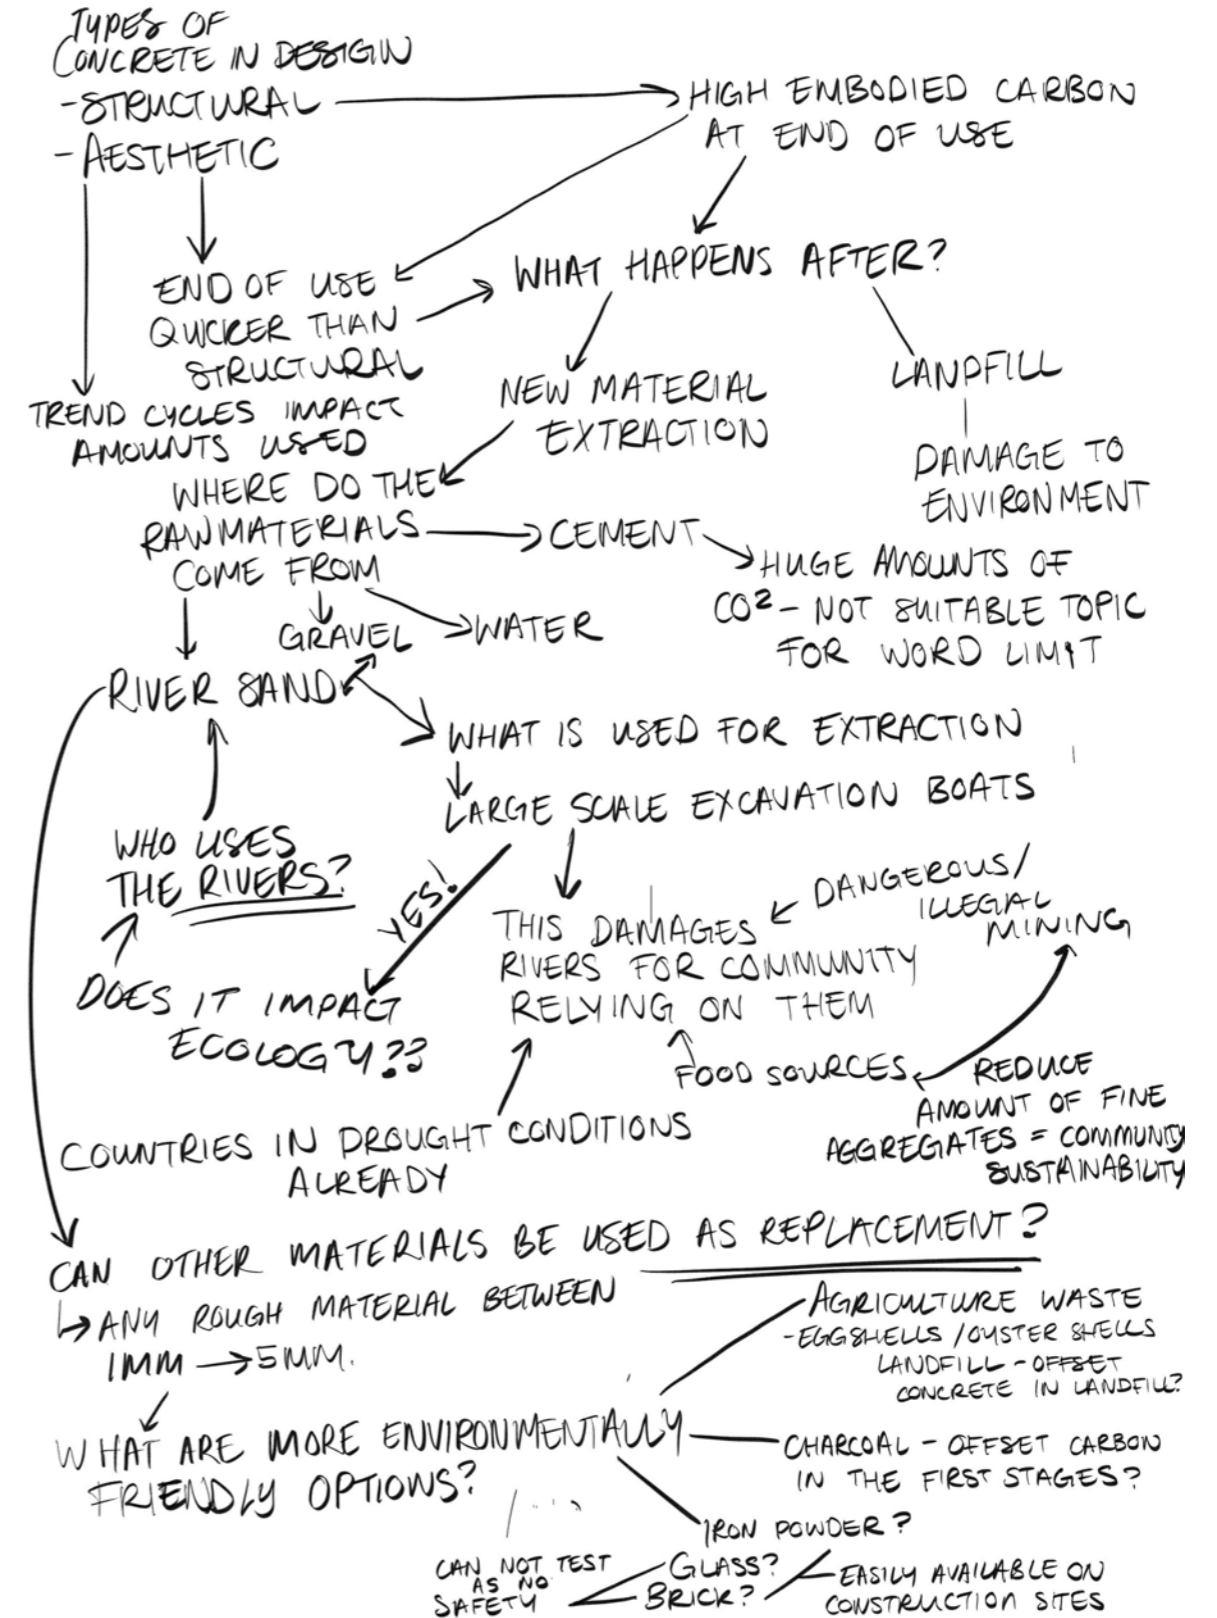 TYPES OF
CONCRETE IN DESIGIN
-STRUCTURAL
-AESTHETIC
HIGH EMBODIED CARBON
AT END OF USE
END OF USE
QUICKER THAN
STRUCTURAL
WHAT HAPPENS AFTER?
TREND CYCLES IMPACT
AMOUNTS USED
NEW MATERIAL
EXTRACTION
LANDFILL
DAMAGE TO
ENVIRONMENT
WHERE DO THE
RAW MATERIALS
COME FROM
CEMENT
HUGE AMOUNTS OF
CO² - NOT SUITABLE TOPIC
FOR WORD LIMIT
GRAVEL
WATER
RIVER SAND
WHAT IS USED FOR EXTRACTION
LARGE SCALE EXCAVATION BOATS
WHO USES
THE RIVERS?
YES!
DOES IT IMPACT
ECOLOGY??
THIS DAMAGES
RIVERS FOR COMMUNITY
RELYING ON THEM
DANGEROUS/
ILLEGIAL
MINING
FOOD SOURCES
REDUCE
AMOUNT OF FINE
AGGREGATES = COMMUNITY
SUSTAINABILITY
COUNTRIES IN DROUGHT CONDITIONS
ALREADY
CAN OTHER MATERIALS BE USED AS REPLACEMENT?
↳ ANY ROUGH MATERIAL BETWEEN
1MM → 5MM.
WHAT ARE MORE ENVIRONMENTALLY
FRIENDLY OPTIONS?
AGRICULTURE WASTE
-EGGSHELLS / OYSTER SHELLS
LANDFILL - OFFSET
CONCRETE IN LANDFILL?
CHARCOAL - OFFSET CARBON
IN THE FIRST STAGES?
IRON POWDER?
GLASS?
BRICK?
CAN NOT TEST
AS NO
SAFETY
EASILY AVAILABLE ON
CONSTRUCTION SITES